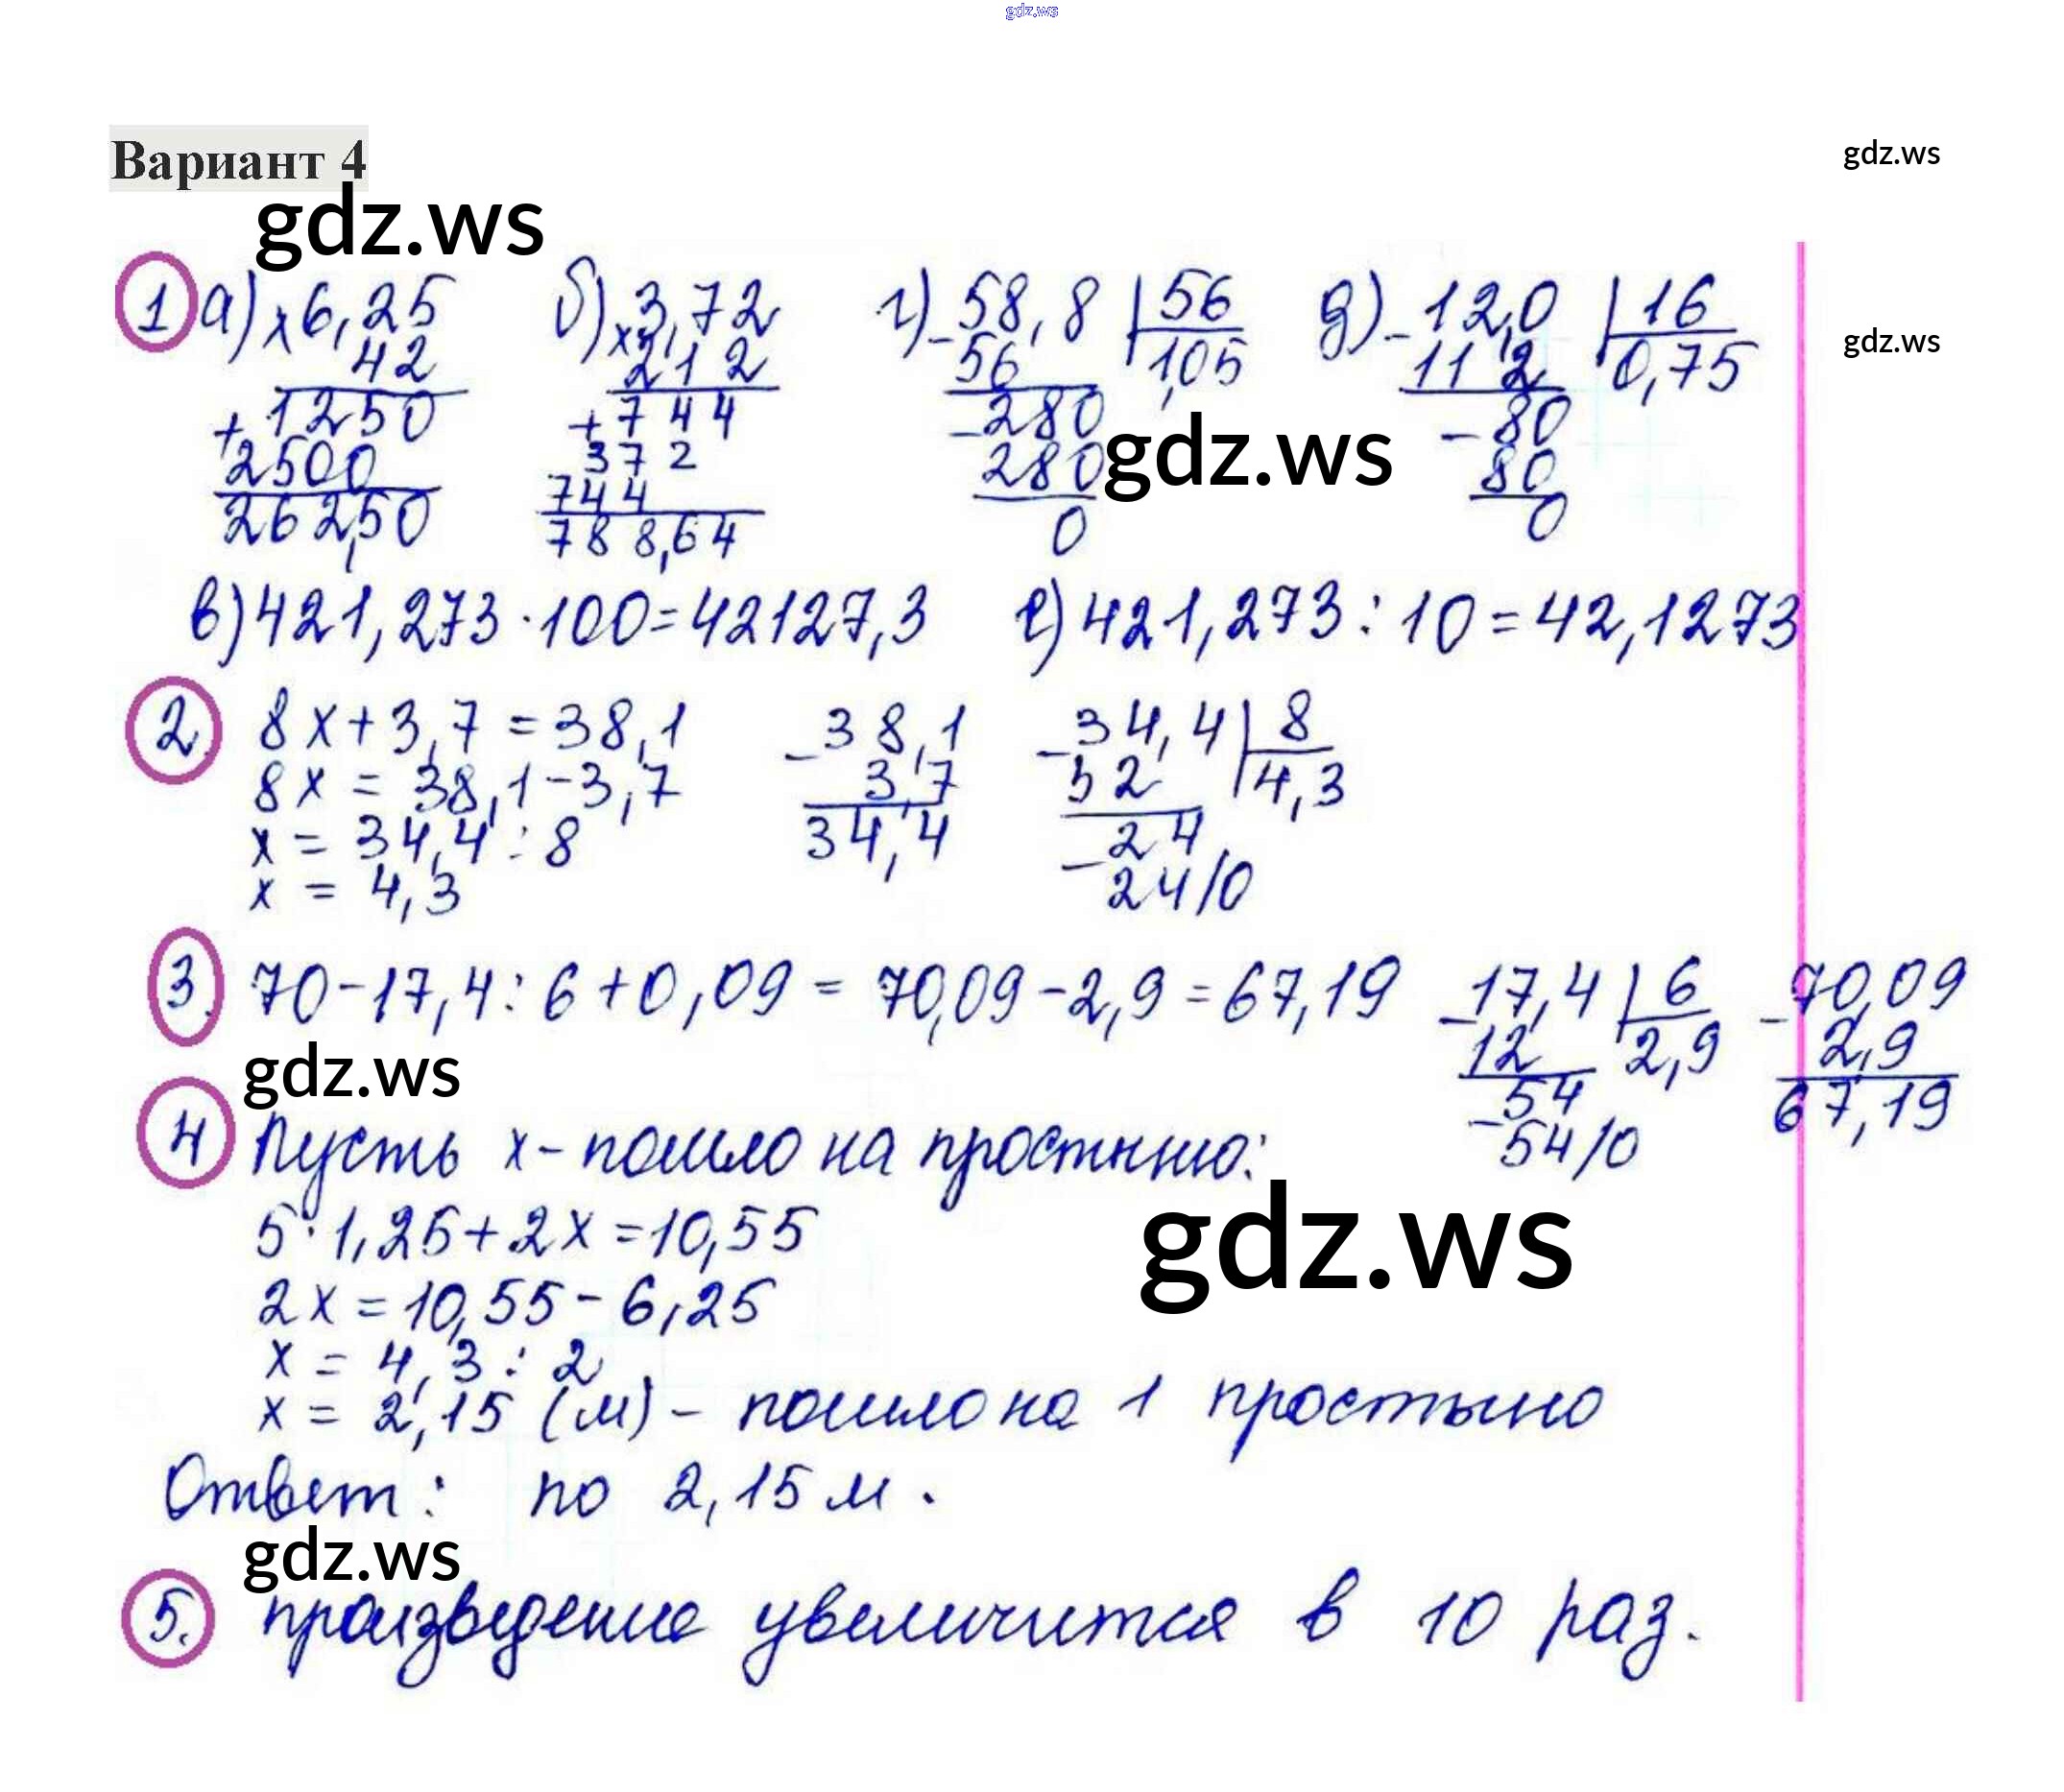 gdz.ws
Вариант 4
gdz.ws
gdz.ws
gdz.ws
1 а) × 6,25 б) × 3,72 г) - 58,8 | 56 д) - 12,0 | 16
42 212 56 1,05 11 2 0,75
+ 1250 + 744 - 280 - 80
2500 372 280 80
262,50 744 0 0
788,64
gdz.ws
в) 421,273 · 100 = 42127,3 е) 421,273 : 10 = 42,1273
2. 8x + 3,7 = 38,1 - 38,1 - 34,4 | 8
8x = 38,1 - 3,7 3,7 32 4,3
x = 34,4 : 8 34,4 - 24
x = 4,3 24/0
3. 70 - 17,4 : 6 + 0,09 = 70,09 - 2,9 = 67,19 - 17,4 | 6 - 70,09
12 2,9 2,9
- 54 67,19
54/0
gdz.ws
4 Пусть x - пошло на простыню:
5 · 1,25 + 2x = 10,55
gdz.ws
2x = 10,55 - 6,25
x = 4,3 : 2
x = 2,15 (м) - пошло на 1 простыню
Ответ: по 2,15 м.
gdz.ws
5. произведение увеличится в 10 раз.